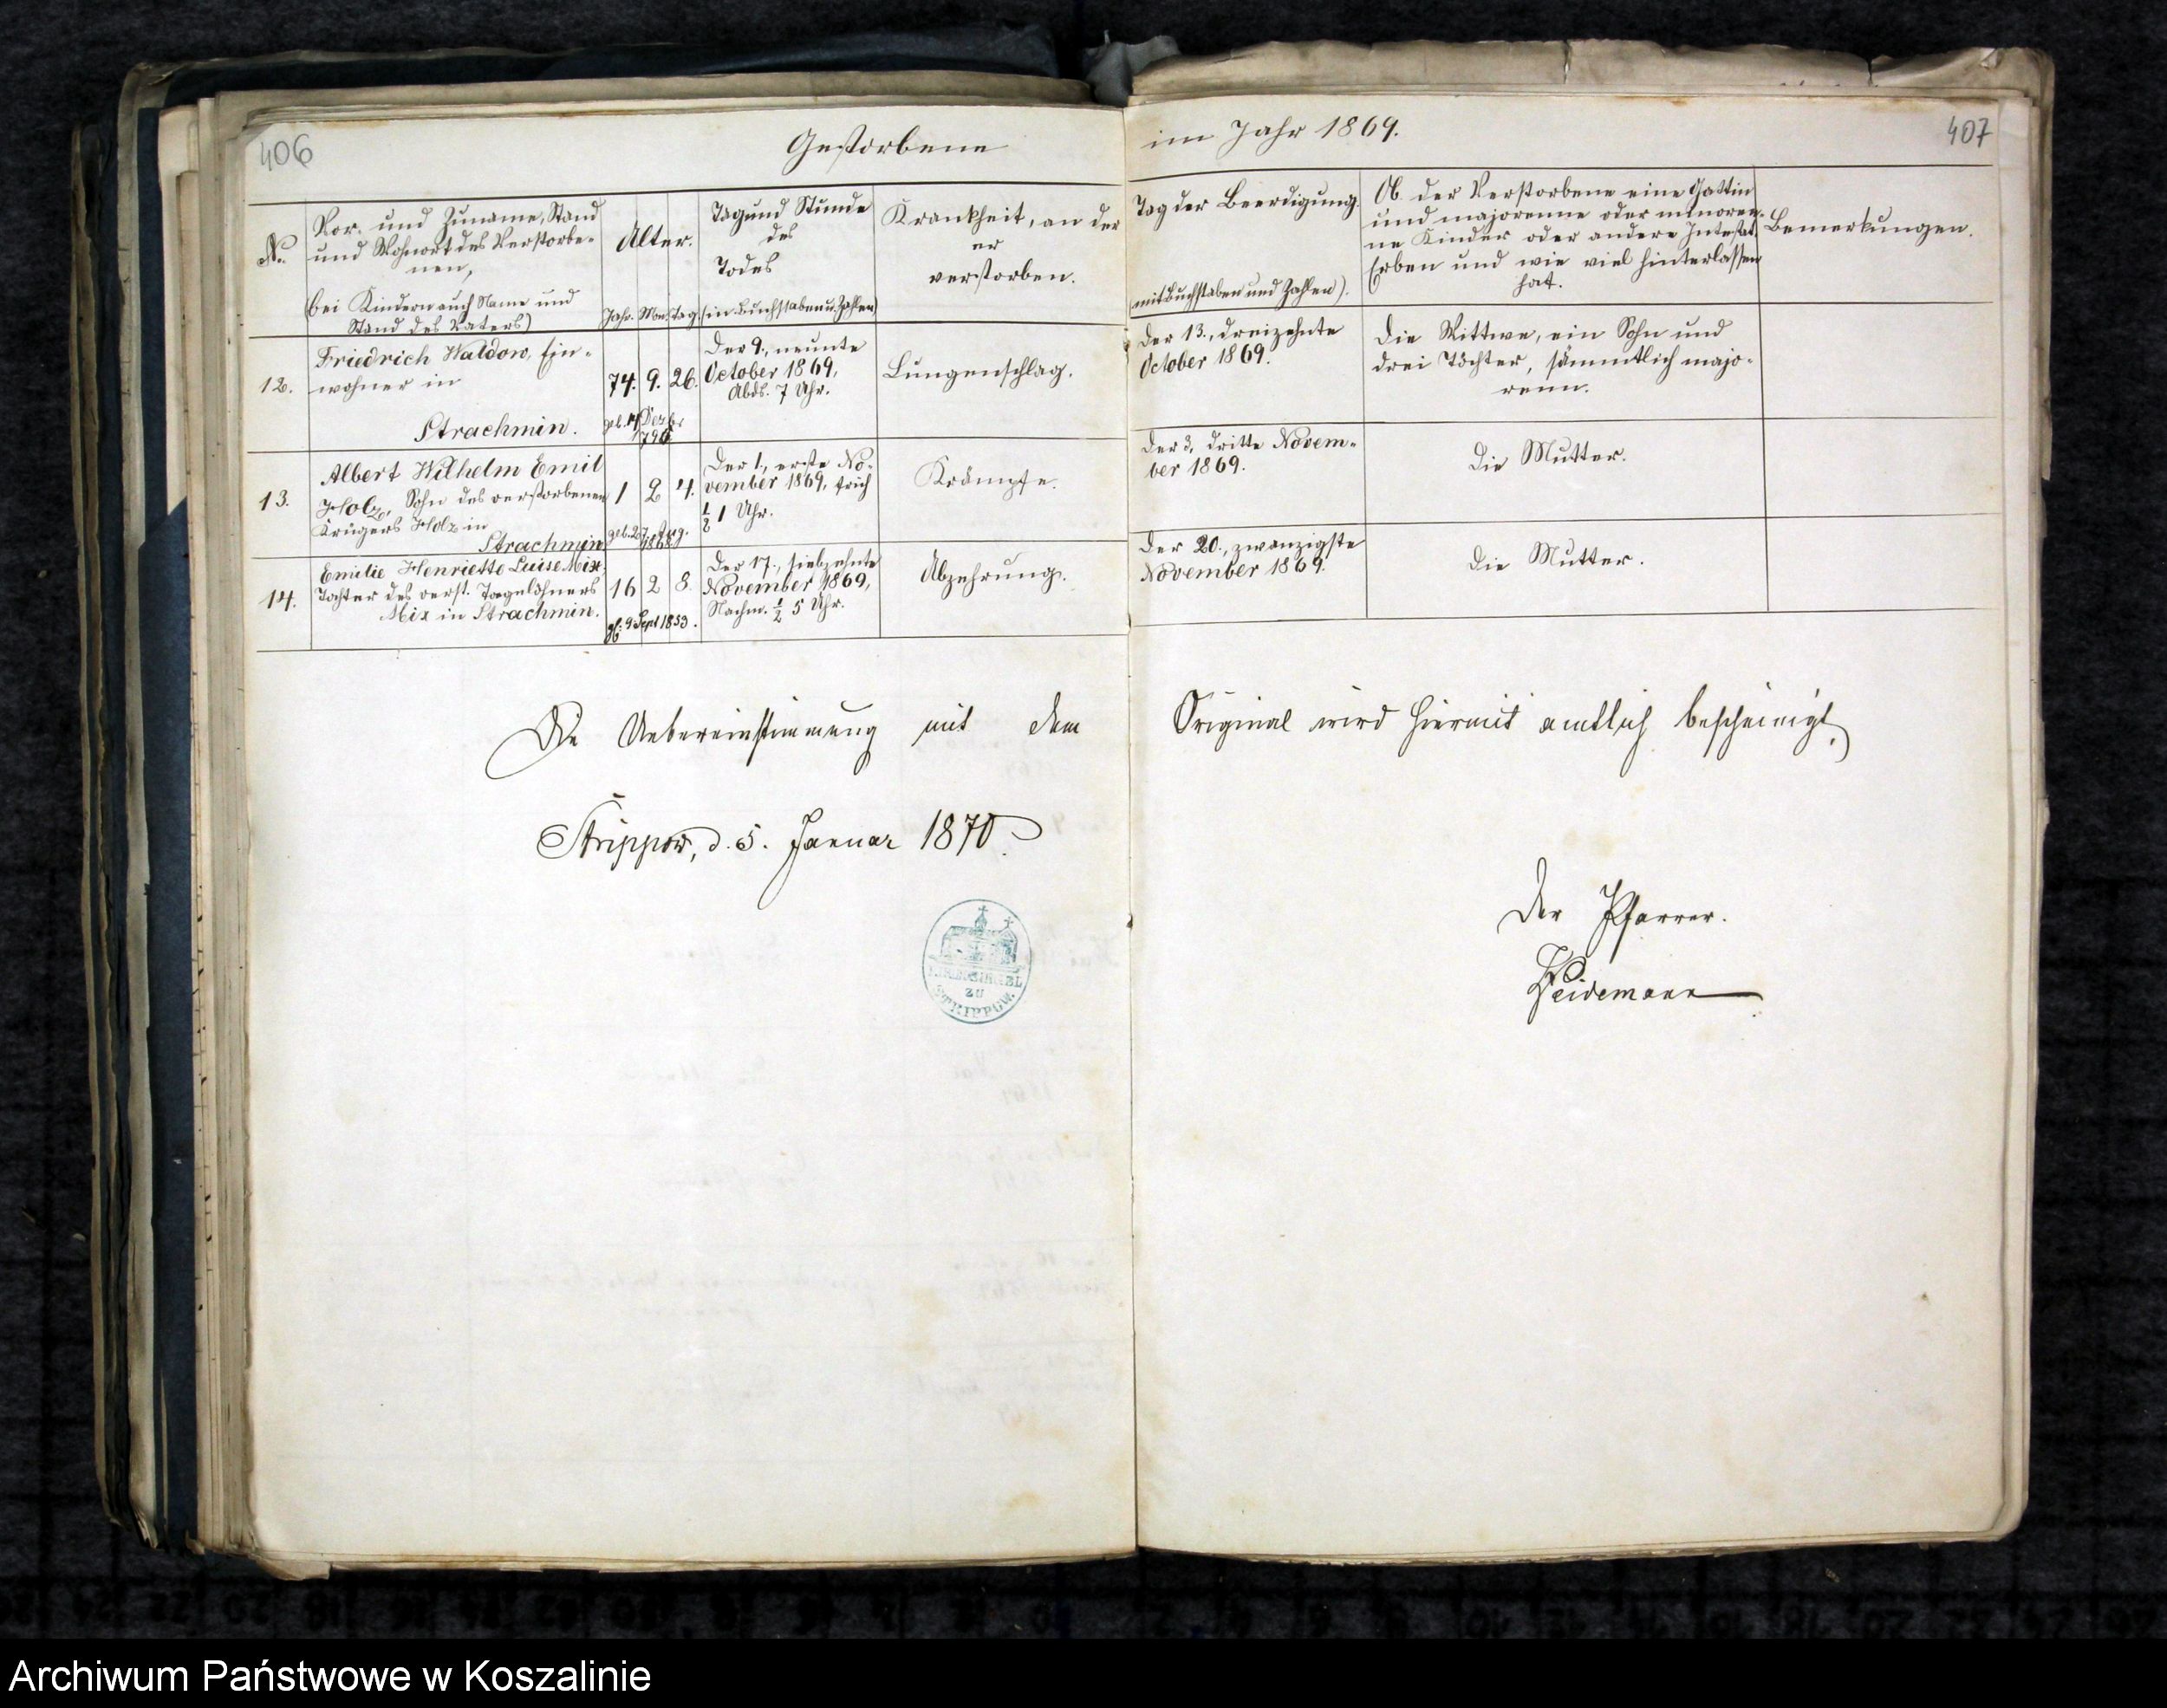 406
Gestorbene
im Jahr 1869.
407
No.
Vor- und Zuname, Stand
und Wohnort des Verstorbe-
nen,
(bei Kindern auch Name und
Stand des Vaters)
Alter.
Jahr. Mon. Tag.
Tag und Stunde
des
Todes
(in Buchstaben u. Zahlen)
Krankheit, an der
er
verstorben.
Tag der Beerdigung.
(mit Buchstaben und Zahlen).
Ob der Verstorbene eine Gattin
und majorenne oder minoren-
ne Kinder oder andere Intestat-
Erben und wie viel hinterlassen
hat.
Bemerkungen.
12.
Friedrich Waldow, Ein-
wohner in
Strachmin.
74. 9. 26.
geb. 14 Dezbr
Der 9., neunte
October 1869,
Abds. 7 Uhr.
Lungenschlag.
Der 13., dreizehnte
October 1869.
Die Wittwe, ein Sohn und
drei Töchter, sämmtlich majo-
renn.
13.
Albert Wilhelm Emil
Holz, Sohn des verstorbenen
Krügers Holz in
Strachmin
1 2 4.
geb. 27. Aug.
1868
Der 1., erste No-
vember 1869, früh
½ 1 Uhr.
Krämpfe.
Der 3, dritte Novem-
ber 1869.
Die Mutter.
14.
Emilie Henriette Luise Mix
Tochter des verst. Tagelöhners
Mix in Strachmin.
16 2 8.
gb. 9 Sept 1853.
Der 17., siebzehnte
November 1869,
Nachm. ½ 5 Uhr.
Abzehrung.
Der 20., zwanzigste
November 1869.
Die Mutter.
Die Uebereinstimmung mit dem Original wird hiermit amtlich bescheinigt,
Strippow, d. 5. Januar 1870.
Der Pfarrer.
Heidemann
KIRCHENSIEGEL
ZU
STRIPPOW.
Archiwum Państwowe w Koszalinie